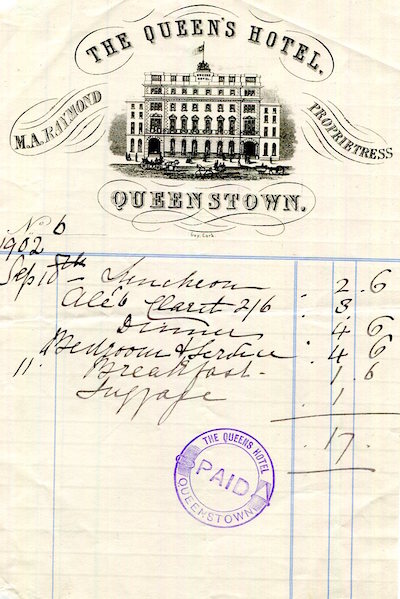 THE QUEEN'S HOTEL.
QUEENS HOTEL
M.A. RAYMOND
PROPRIETRESS
QUEENSTOWN.
Guy, Cork
No 6
1902
Sep 10th – Luncheon . 2 . 6
Ale 6 Claret 2/6 . 3 .
Dinner . 4 6
Bedroom & Service . 4 6
11. Breakfast - . 1 . 6
Luggage . 1
. 17 .
THE QUEENS HOTEL
PAID
QUEENSTOWN